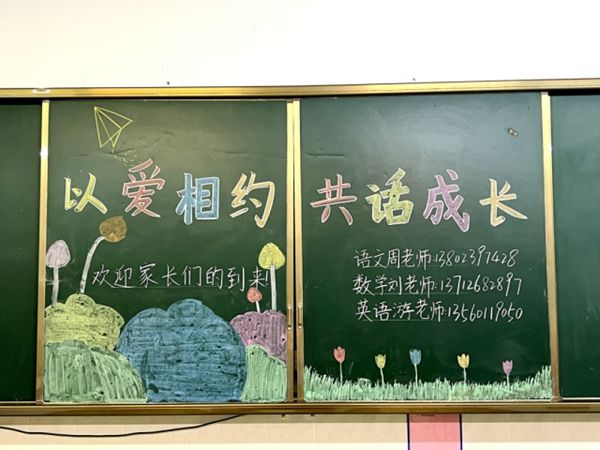 以爱相约 共话成长
欢迎家长们的到来
语文周老师:13802397428
数学刘老师:13712682897
英语游老师:13560119050